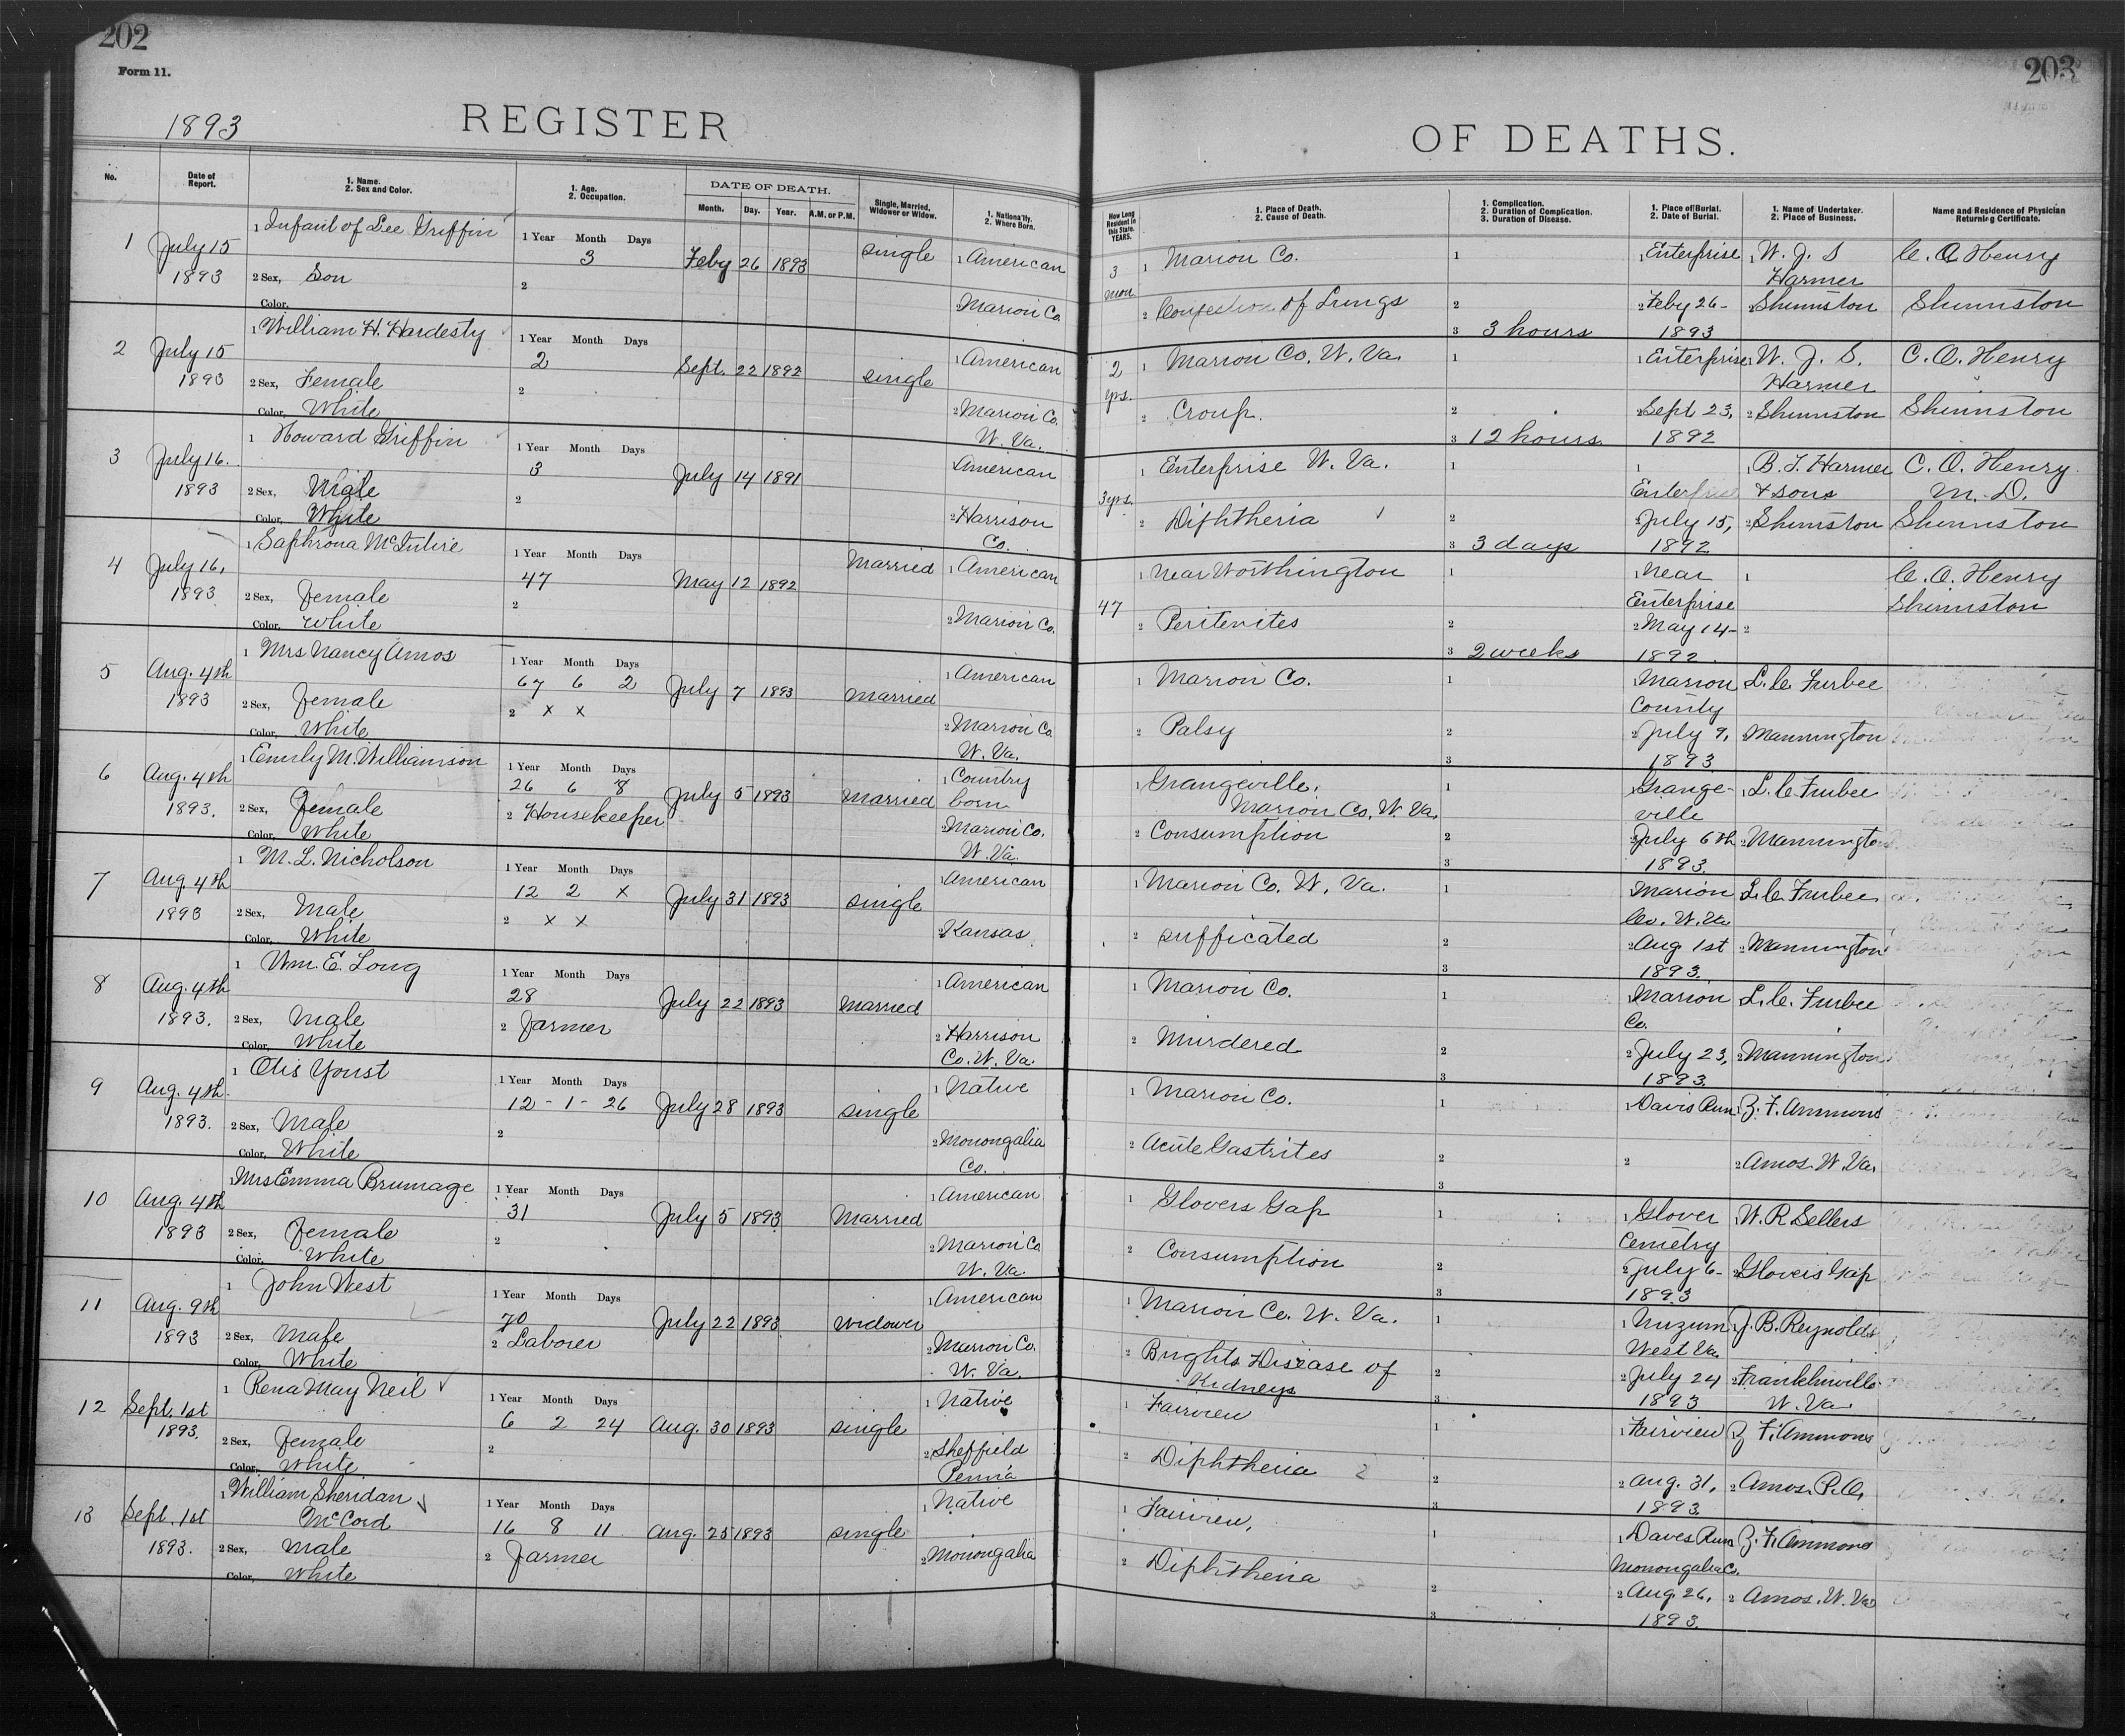 202
Form 11.
1893
REGISTER
No.
Date of Report.
1. Name.
2. Sex and Color.
1. Age.
2. Occupation.
DATE OF DEATH.
Month. Day. Year. A.M. or P.M.
Single, Married, Widower or Widow.
1. Nationality.
2. Where Born.
1 July 15 1893
1 Infant of Lee Griffin
2 Sex, Son
Color,
1 Year Month Days
3
2
Feby 26 1893 single
1 American
2 Marion Co.
2 July 15 1893
1 William H. Hardesty
2 Sex, Female
Color, White
1 Year Month Days
2
2
Sept. 22 1892 single
1 American
2 Marion Co.
W. Va.
3 July 16. 1893
1 Howard Griffin
2 Sex, Male
Color, White
1 Year Month Days
3
2
July 14 1891
1 American
2 Harrison
Co.
4 July 16, 1893
1 Saphrona McIntire
2 Sex, Female
Color, White
1 Year Month Days
47
2
May 12 1892 Married
1 American
2 Marion Co.
5 Aug. 4th 1893
1 Mrs Nancy Amos
2 Sex, Female
Color, White
1 Year Month Days
67 6 2
2 x x
July 7 1893 Married
1 American
2 Marion Co
W. Va.
6 Aug. 4th 1893.
1 Emerly M. Williamson
2 Sex, Female
Color, White
1 Year Month Days
26 6 8
2 Housekeeper
July 5 1893 Married
1 Country
born
2 Marion Co.
W. Va.
7 Aug. 4th 1893
1 M. L. Nicholson
2 Sex, Male
Color, White
1 Year Month Days
12 2 x
2 x x
July 31 1893 single
1 American
2 Kansas
8 Aug. 4th 1893.
1 Wm. E. Long
2 Sex, Male
Color, White
1 Year Month Days
28
2 Farmer
July 22 1893 Married
1 American
2 Harrison
Co. W. Va.
9 Aug. 4th. 1893.
1 Otis Youst
2 Sex, Male
Color, White
1 Year Month Days
12 - 1 - 26
2
July 28 1893 single
1 Native
2 Monongalia
Co.
10 Aug. 4th 1893
1 Mrs Emma Brumage
2 Sex, Female
Color, White
1 Year Month Days
31
2
July 5 1893 Married
1 American
2 Marion Co
W. Va.
11 Aug. 9th 1893
1 John West
2 Sex, Male
Color, White
1 Year Month Days
70
2 Laborer
July 22 1893 widower
1 American
2 Marion Co.
W. Va.
12 Sept. 1st 1893.
1 Rena May Neil
2 Sex, Female
Color, White
1 Year Month Days
6 2 24
2
Aug. 30 1893 single
1 Native
2 Sheffield
Penna
13 Sept. 1st 1893.
1 William Sheridan
McCord
2 Sex, Male
Color, White
1 Year Month Days
16 8 11
2 Farmer
Aug. 25 1893 single
1 Native
2 Monongalia
203
OF DEATHS.
How Long Resident in this State. YEARS.
1. Place of Death.
2. Cause of Death.
1. Complication.
2. Duration of Complication.
3. Duration of Disease.
1. Place of Burial.
2. Date of Burial.
1. Name of Undertaker.
2. Place of Business.
Name and Residence of Physician Returning Certificate.
3 mon
1 Marion Co.
2 Congestion of Lungs
1
2
3 3 hours
1 Enterprise
2 Feby 26-
1893
1 W. J. S
Harmer
2 Shinnston
C. O. Henry
Shinnston
2 yrs.
1 Marion Co. W. Va.
2 Croup.
1
2
3 12 hours.
1 Enterprise
2 Sept 23,
1892
1 W. J. S.
Harmer
2 Shinnston
C. O. Henry
Shinnston
3 yrs.
1 Enterprise W. Va.
2 Diphtheria
1
2
3 3 days
1
Enterprise
2 July 15,
1892
1 B. T. Harmer
& sons
2 Shinnston
C. O. Henry
M. D.
Shinnston
47
1 Near Worthington
2 Peritenites
1
2
3 2 weeks
1 Near
Enterprise
2 May 14-
1892.
1
2
C. O. Henry
Shinnston
1 Marion Co.
2 Palsy
1
2
3
1 Marion
County
2 July 9,
1893
L. C. Furbee
2 Mannington
1 Grangeville,
Marion Co, W. Va.
2 Consumption
1
2
3
1 Grange-
ville
2 July 6th
1893.
1 L. C. Furbee
2 Mannington
1 Marion Co. W. Va.
2 sufficated
1
2
3
Marion
Co. W. Va
2 Aug 1st
1893.
L. C. Furbee
2 Mannington
1 Marion Co.
2 Murdered
1
2
3
1 Marion
Co.
2 July 23,
1893.
L. C. Furbee
2 Mannington
1 Marion Co.
2 Acute Gastrites
1
2
3
1 Davis Run
2
1 Z. F. Ammons
2 Amos. W. Va.
1 Glovers Gap
2 Consumption
1
2
3
1 Glover
Cemetry
2 July 6-
1893
1 W. R. Sellers
2 Glovers Gap
1 Marion Co. W. Va.
2 Brights Disease of
Kidneys
1
2
3
1 Nuzum
West Va.
2 July 24
1893
1 J. B. Reynolds
2 Franklinville
W. Va
1 Fairview
2 Diphtheria
1
2
3
1 Fairview
2 Aug. 31,
1893.
Z. F. Ammons
2 Amos. P. O.
1 Fairview,
2 Diphtheria
1
2
3
1 Daves Run
Monongalia Co.
2 Aug. 26,
1893.
Z. F. Ammons
2 Amos. W. Va